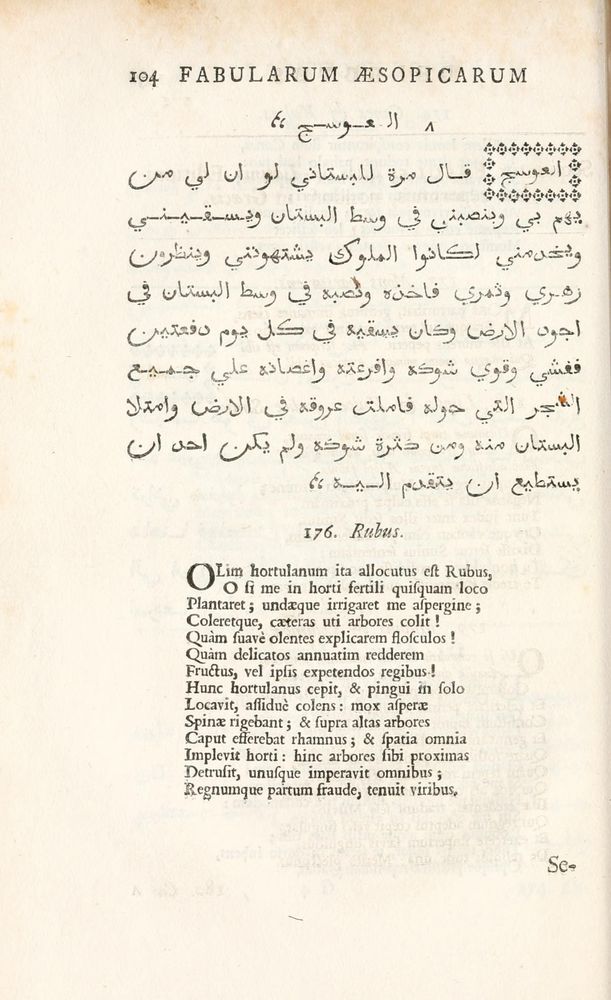 104 FABULARUM ÆSOPICARUM
٨ العوسج
العوسج قال مرة للبستاني لو ان لي من
يهم بي وينصبني في وسط البستان ويسقيني
ويخدمني لكانوا الملوك يشتهوني وينظرون
زهري وثمري فاخذه ونصبه في وسط البستان في
اجود الارض وكان يسقيه في كل يوم دفعتين
ففشي وقوي شوكه وافرعته واغصانه علي جميع
الشجر التي حوله فاملت عروقه في الارض وامتلا
البستان منه ومن كثرة شوكه ولم يكن احد ان
يستطيع ان يتقدم اليه
176. Rubus.
OLim hortulanum ita allocutus eſt Rubus,
O ſi me in horti fertili quiſquam loco
Plantaret; undæque irrigaret me aſpergine;
Coleretque, cæteras uti arbores colit!
Quàm ſuavè olentes explicarem floſculos!
Quàm delicatos annuatim redderem
Fructus, vel ipſis expetendos regibus!
Hunc hortulanus cepit, & pingui in ſolo
Locavit, aſſiduè colens: mox aſperæ
Spinæ rigebant; & ſupra altas arbores
Caput efferebat rhamnus; & ſpatia omnia
Implevit horti: hinc arbores ſibi proximas
Detruſit, unuſque imperavit omnibus;
Regnumque partum fraude, tenuit viribus.
Se-